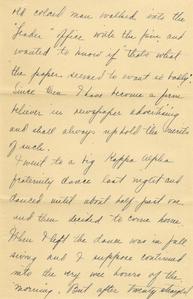 old colored man walked into the
"Leader" office with the pin and
wanted to know if "that's what
the paper seemed to want so badly."
Since then I have become a firm
believer in newspaper advertising
and shall always uphold the merits
of such.
I went to a big Kappa Alpha
fraternity dance last night and
danced until about half past one
and then decided to come home.
When I left the dance was in full
swing and I suppose continued
into the very wee hours of the
morning. But after twenty straight